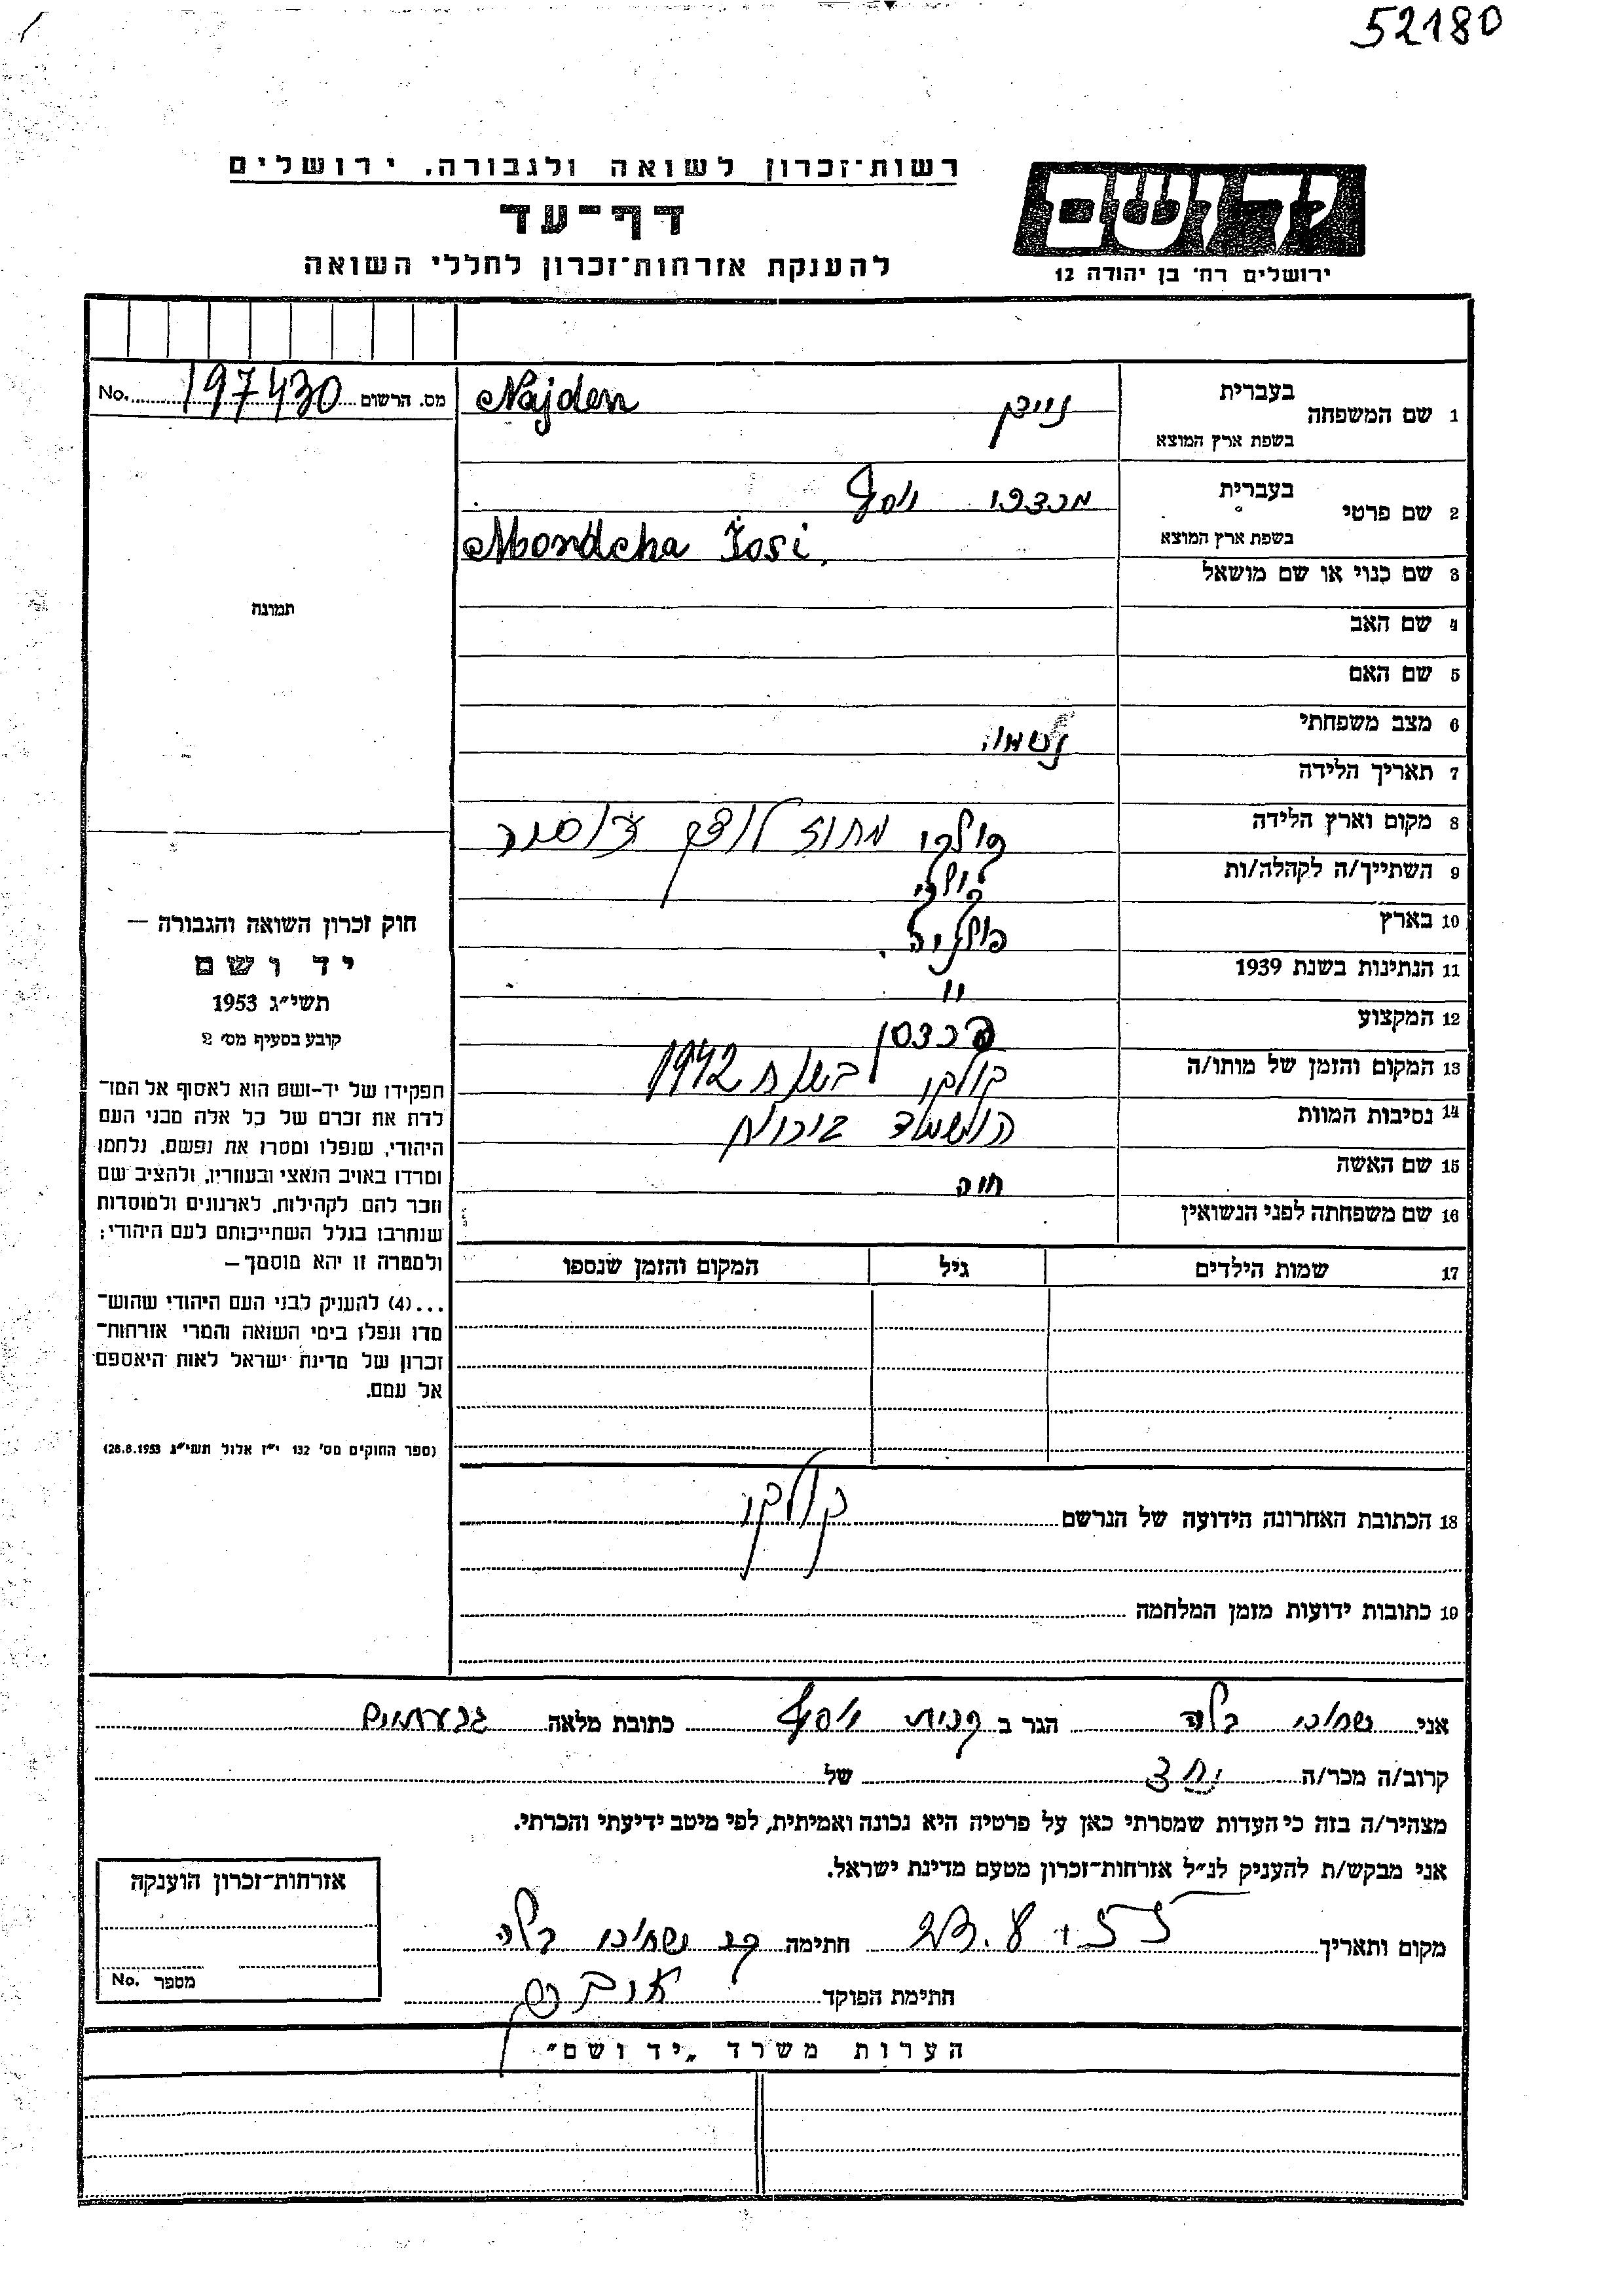 52180
רשות־זכרון לשואה ולגבורה. ירושלים
ידושם
דף־עד
להענקת אזרחות־זכרון לחללי השואה
ירושלים רח׳ בן יהודה 12
בעברית
1 שם המשפחה
בשפת ארץ המוצא
ניידן
Najden
מס. הרשום 197430 No.
בעברית
2 שם פרטי
בשפת ארץ המוצא
יוסף
Mondcha Iosi
3 שם כנוי או שם מושאל
תמונה
4 שם האב
5 שם האם
6 מצב משפחתי
7 תאריך הלידה
8 מקום וארץ הלידה
מחוז
9 השתייך/ה לקהלה/ות
10 בארץ פולניה.
11 הנתינות בשנת 1939 "
12 המקצוע
13 המקום והזמן של מותו/ה בשנת 1942
14 נסיבות המוות
15 שם האשה חוה
16 שם משפחתה לפני הנשואין
חוק זכרון השואה והגבורה —
יד ושם
תשי״ג 1953
קובע בסעיף מס׳ 2
תפקידו של יד-ושם הוא לאסוף אל המו־
לדת את זכרם של כל אלה מבני העם
היהודי, שנפלו ומסרו את נפשם, נלחמו
ומרדו באויב הנאצי ובעוזריו, ולהציב שם
וזכר להם לקהילות, לארגונים ולמוסדות
שנחרבו בגלל השתייכותם לעם היהודי;
ולמטרה זו יהא מוסמך —
...(4) להעניק לבני העם היהודי שהוש־
מדו ונפלו בימי השואה והמרי אזרחות־
זכרון של מדינת ישראל לאות היאספם
אל עמם.
(ספר החוקים מס׳ 132 י״ז אלול תשי״ג 28.8.1953)
17 שמות הילדים גיל המקום והזמן שנספו
18 הכתובת האחרונה הידועה של הנרשם
19 כתובות ידועות מזמן המלחמה
אני בלה הגר ב קרית יוסף כתובת מלאה גבעתיים
קרוב/ה מכר/ה של
מצהיר/ה בזה כי העדות שמסרתי כאן על פרטיה היא נכונה ואמיתית, לפי מיטב ידיעתי והכרתי.
אני מבקש/ת להעניק לנ״ל אזרחות־זכרון מטעם מדינת ישראל.
מקום ותאריך 23.8.55 חתימה בלה
חתימת הפוקד
אזרחות־זכרון הוענקה
מספר No.
הערות משרד „יד ושם"